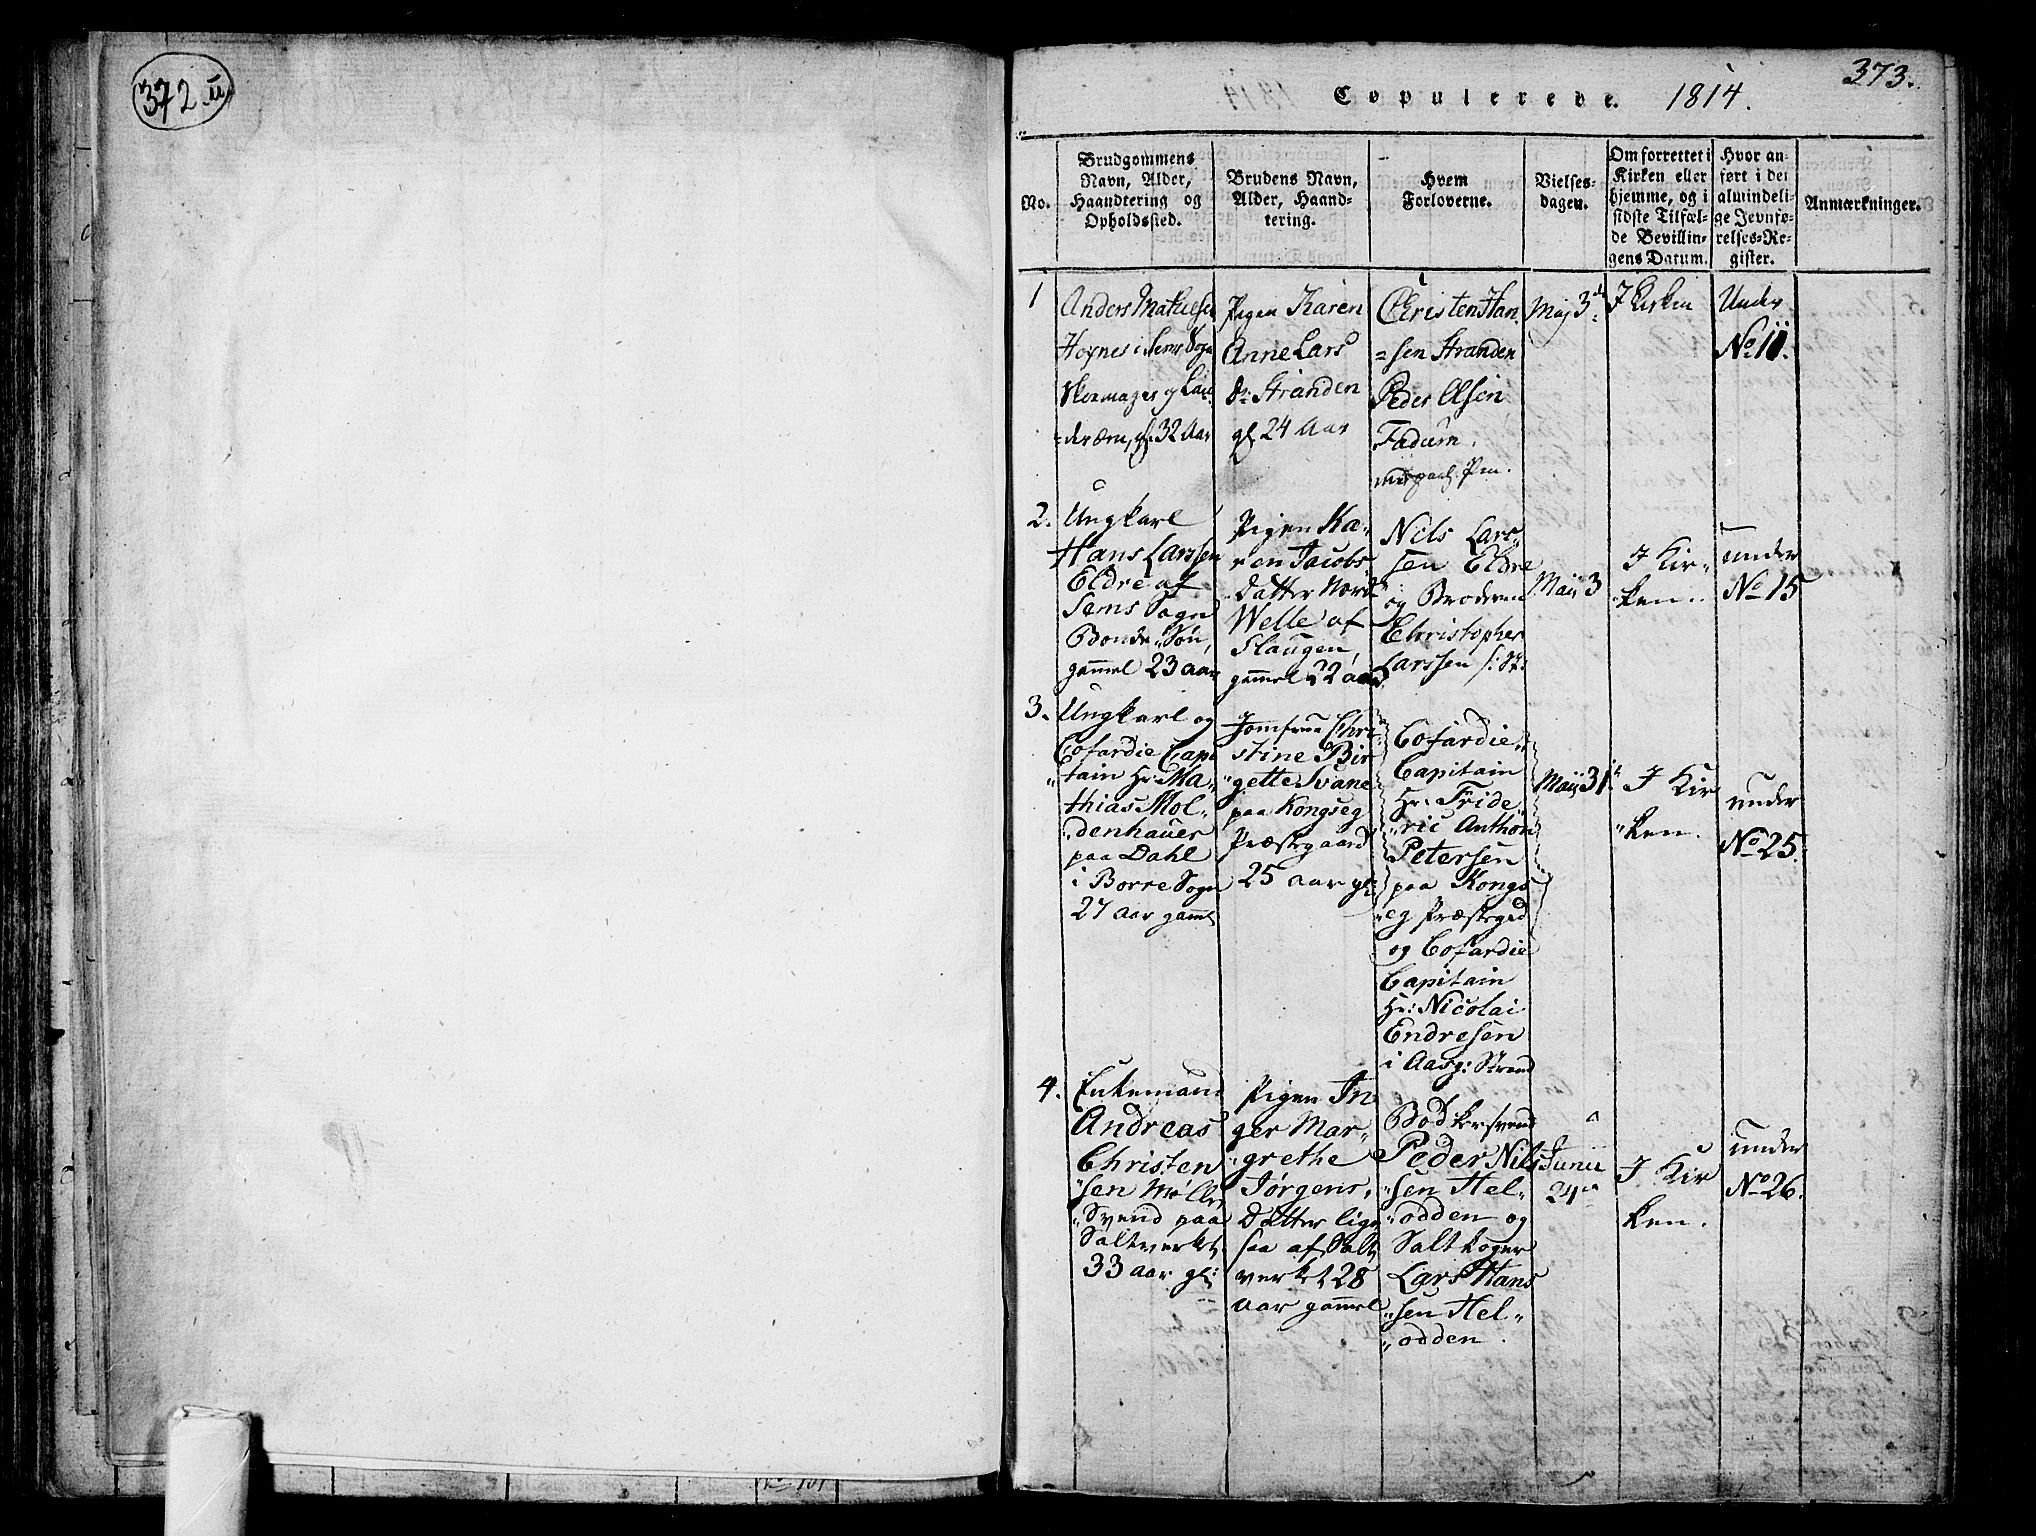 372 II
373.
Copulerede. 1814.
No.
Brudgommens
Navn, Alder,
Haandtering og
Opholdssted.
Brudens Navn,
Alder, Haand-
tering.
Hvem
Forloverne.
Vielses-
dagen.
Om forrettet i
Kirken eller
hjemme, og i
sidste Tilfæl-
de Bevillin-
gens Datum.
Hvor an-
ført i det
almindeli-
ge Jevnfø-
relses-Re-
gister.
Anmærkninger.
1
Anders Mathiesen
i Sems Sogn
Skomager og
gl. 32 Aar
Pigen Karen
Anne Lars
Dr. Stranden
gl 24 Aar
Christen Han-
=sen Stranden
Peder Olsen
Fadum.
Maj 3d.
I Kirken
Under
No 11.
2.
Ungkarl
Hans Larssen
Eldre af
Sems Sogn
Bonde-Søn,
gammel 23 aar
Pigen Ka-
ren Jacobs
Datter Nord
Welle af
Slaugen,
gammel 22 aar
Nils Lars-
sen Eldre
og Broderen
Christopher
Larssen
Maij 3
I Kir-
"ken.
under
No 15
3.
Ungkarl og
Cofardie Capi
"tain Hr: Ma-
thias Mol-
"denhauer
paa Dahl
i Borre Sogn
27 aar gaml
Jomfrue Chri-
stine Bir
"gette Svane
paa Kongseg
Præstegaard
25 aar gl:
Cofardie-
Capitain
Hr: Fride
"ric Anthon
Petersen
paa Kongs
"eg Præstegrd
og Cofardie
Capitain
Hr: Nicolai
Endresen
i Aasg: Strand
Maij 31
I Kir
"ken.
under
No 25.
4.
Enkemand
Andreas
Christen
"sen Møller
"Svend paa
Saltverket
33 aar gl:
Pigen In
ger Mar-
"grethe
Jørgens-
Datter lige
saa af Salt
verket 28
aar gammel
Bødkersvend
Peder Nils
"sen Hel-
"odden og
Saltkoger
Lars Hans
"sen Hel-
"odden.
Junii
24
I Kir
ken.
under
No 26.
No 101